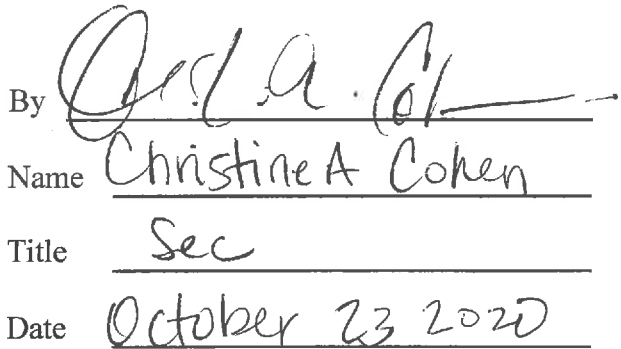 By
Name Christine A Cohen
Title Sec
Date October 23 2020